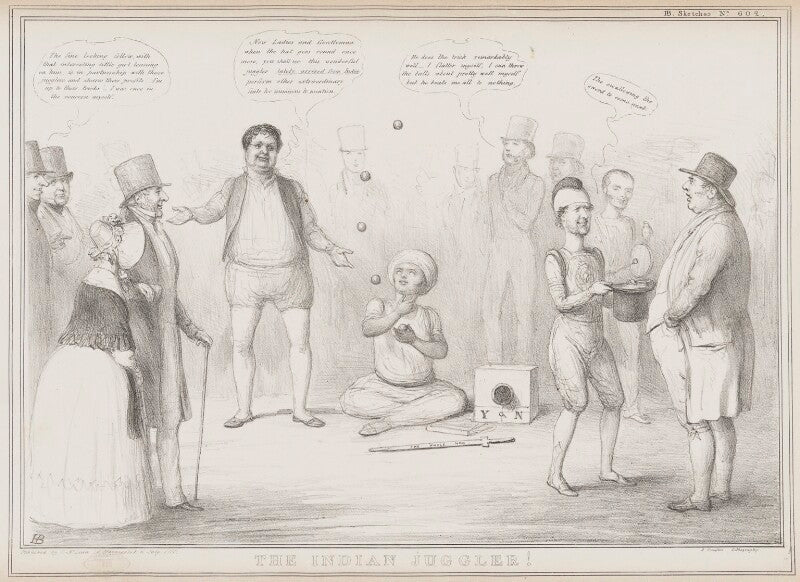 HB. Sketches Nº 602.
The fine looking fellow with
that interesting little girl leaning
on him is in partnership with these
jugglers and shares their profits I'm
up to their tricks – I was once in
the concern myself.
Now Ladies and Gentlemen
when the hat goes round once
more, you shall see this wonderful
juggler lately arrived from India
perform other extraordinary
feats too numerous to mention.
He does the trick remarkably
well – I flatter myself, I can throw
the balls about pretty well myself
but he beats me all to nothing.
The swallowing the
sword is come next.
Y & N
THE WHOLE HOG
HB
THE INDIAN JUGGLER!